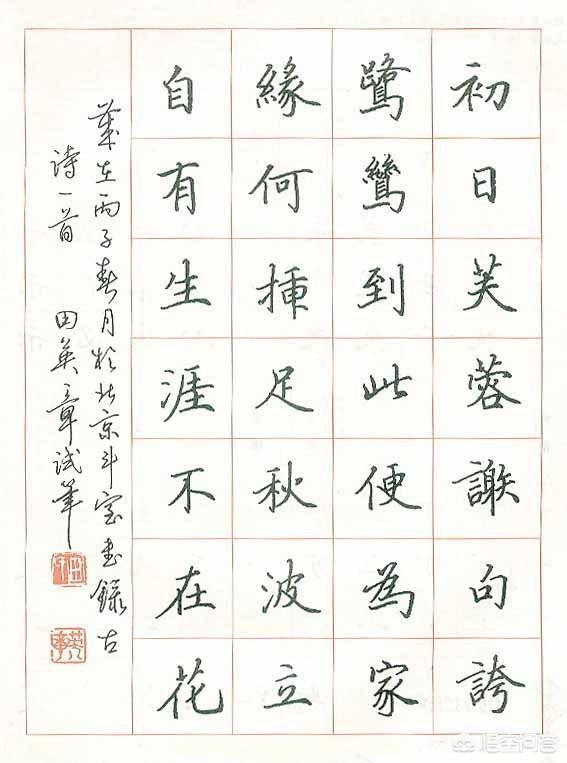 初日芙蓉謝句誇
鷺鷥到此便為家
緣何挿足秋波立
自有生涯不在花
歲在丙子春月於北京斗室书錄古
诗一首 田英章试筆
悟空问答